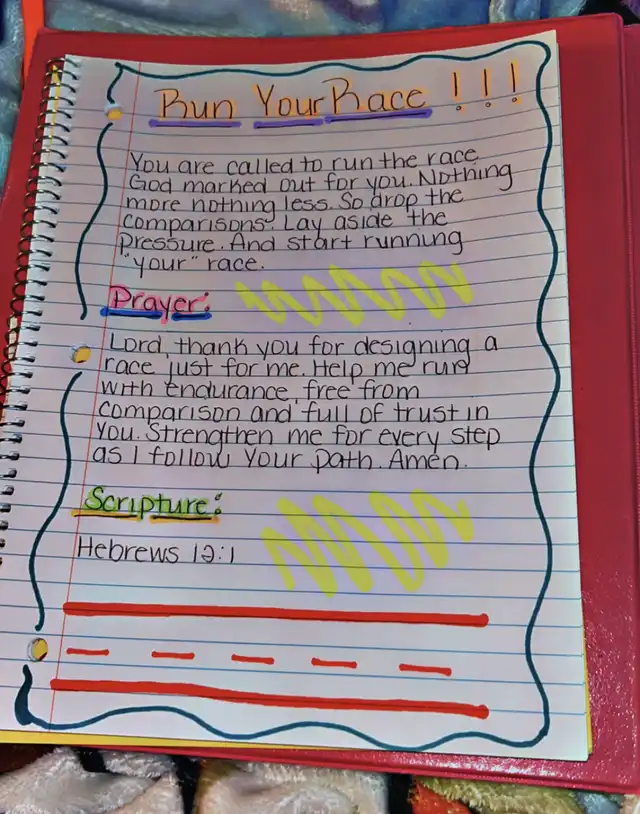 Run Your Race !!!
You are called to run the race
God marked out for you. Nothing
more nothing less. So drop the
comparisons. Lay aside the
pressure. And start running
"your" race.
Prayer:
Lord, thank you for designing a
race just for me. Help me run
with endurance, free from
comparison and full of trust in
You. Strengthen me for every step
as I follow Your path. Amen.
Scripture:
Hebrews 12:1